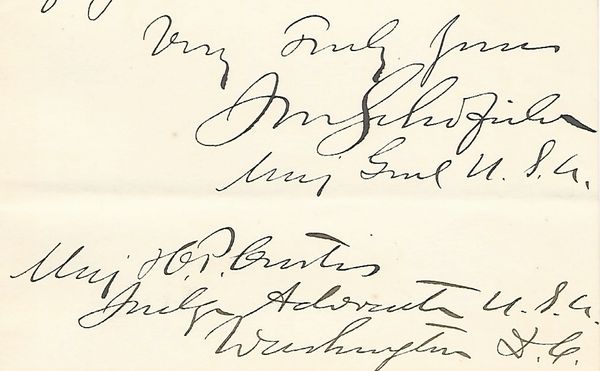 Very Truly Yours
JMSchofield
Maj Genl U.S.A.
Maj H.P. Curtis
Judge Advocate U.S.A.
Washington D.C.